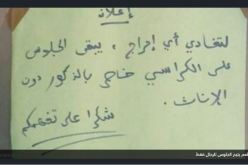 إعلان
لتفادي أي إحراج ، يبقى الجلوس
على الكراسي خاص بالذكور دون
الإناث .
شكرا على تفهمكم
يتم الجلوس للرجال فقط